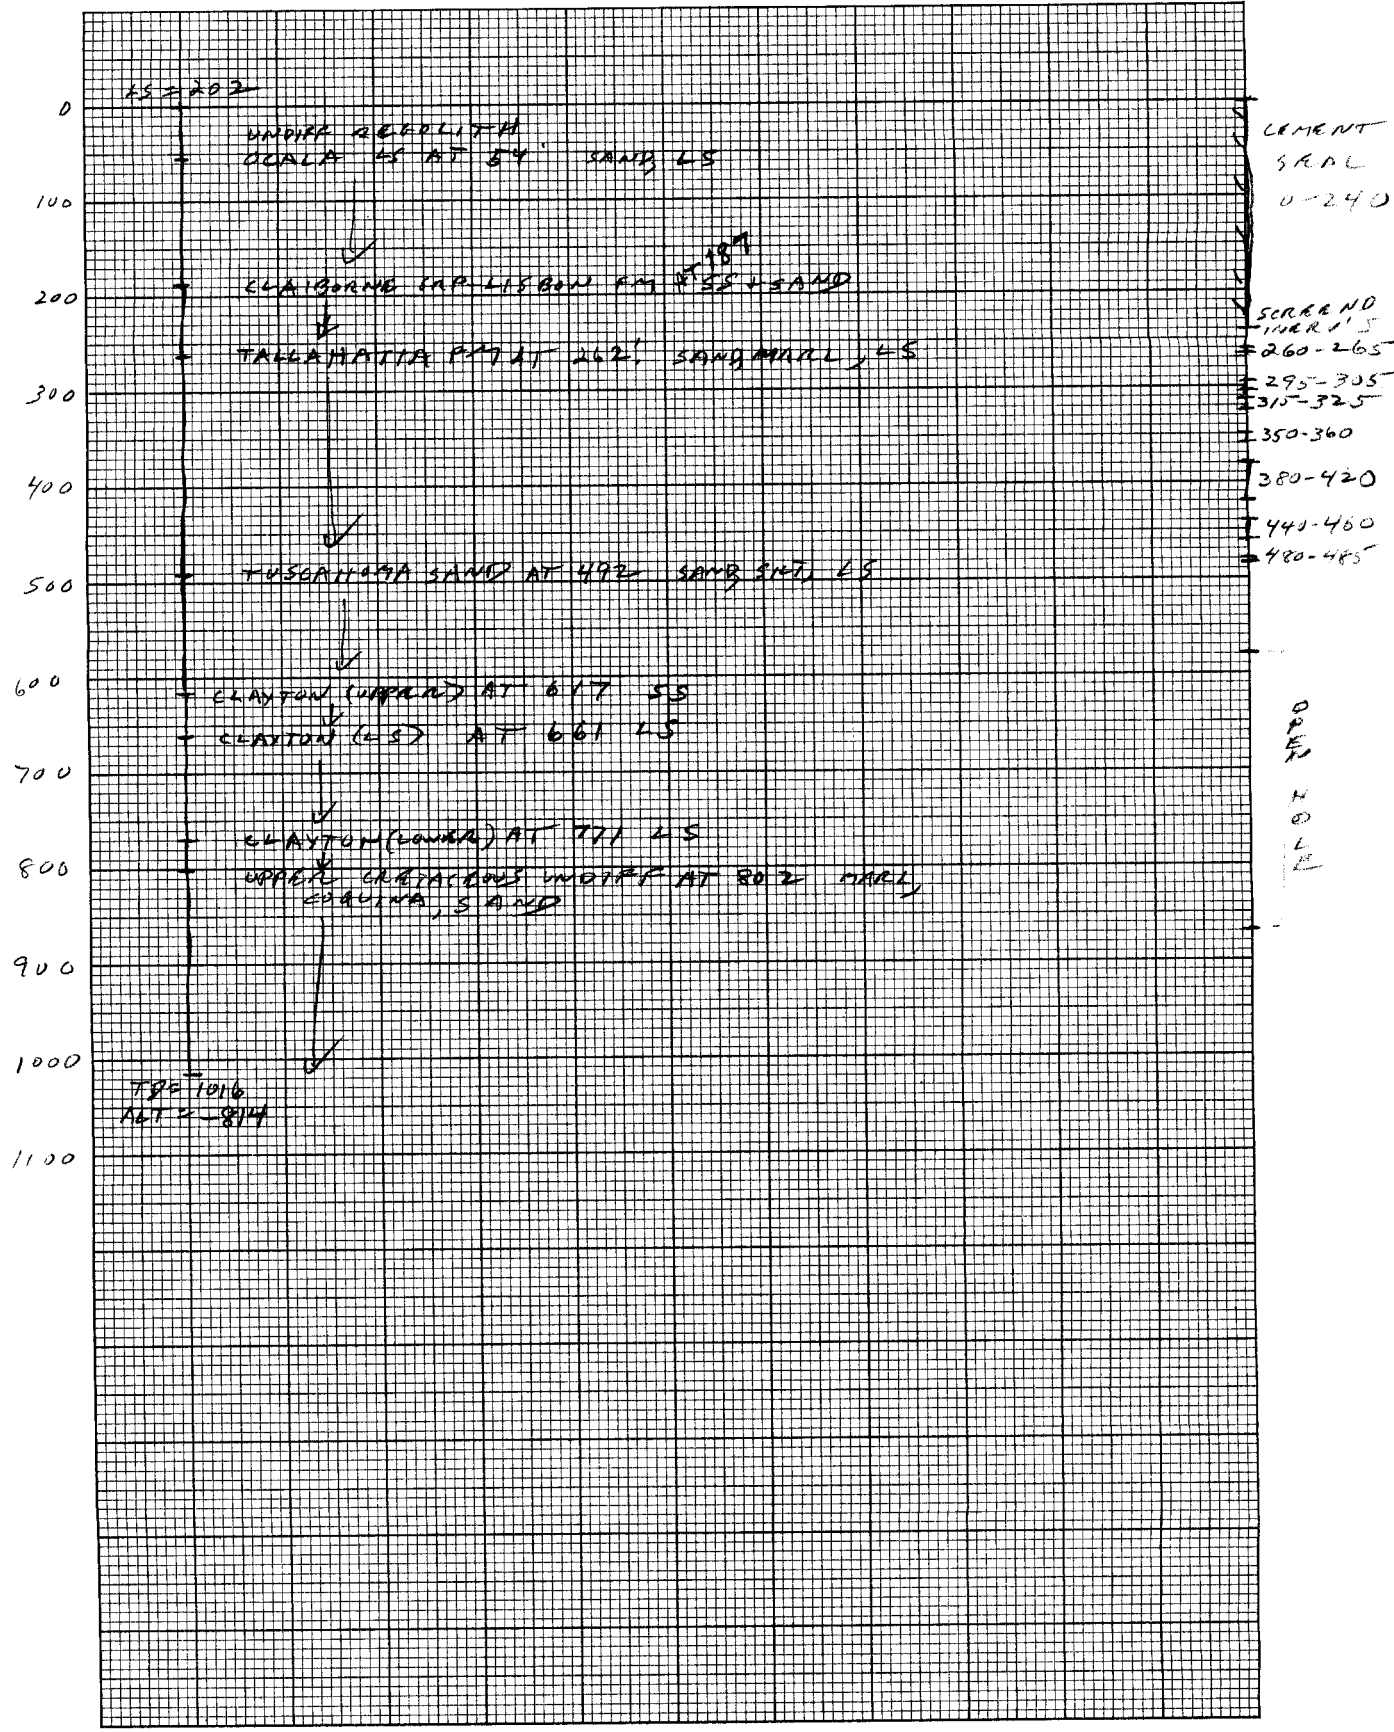 LS = 202
0
UNDIFF REGOLITH
OCALA LS AT 54' SAND, LS
100
AT 187
CLAIBORNE GRP LISBON FM SS + SAND
200
TALLAHATTA FM AT 262' SAND, MARL, LS
300
400
TUSCAHOMA SAND AT 492 SAND, SILT, LS
500
600
CLAYTON (UPPER) AT 617 SS
CLAYTON (LS) AT 661 LS
700
CLAYTON (LOWER) AT 771 LS
800
UPPER CRETACEOUS UNDIFF AT 802 MARL,
COQUINA, SAND
900
1000
TD = 1016
ALT = -814
1100
CEMENT
SEAL
0-240
SCREEND
260-265
295-305
315-325
350-360
380-420
440-460
480-485
OPEN HOLE